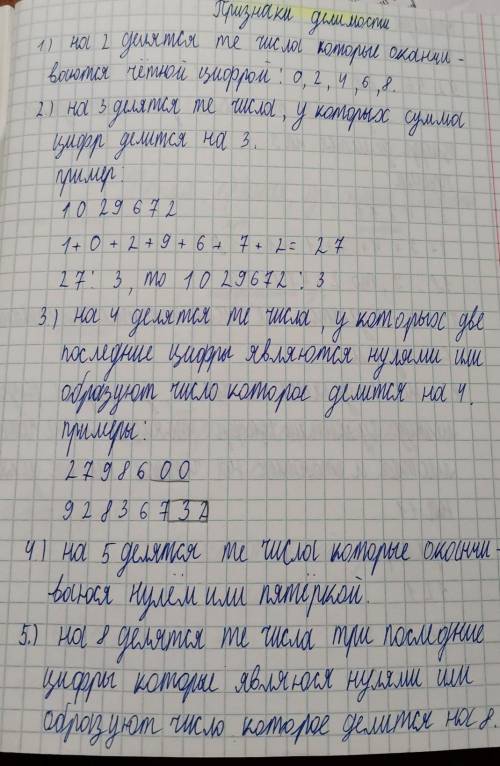 Признаки делимости
1) на 2 делятся те числа которые оканчи-
ваются чётной цифрой: 0, 2, 4, 6, 8.
2) на 3 делятся те числа, у которых сумма
цифр делится на 3.
пример:
1029672
1+0+2+9+6+7+2= 27
27⋮3, то 1029672⋮3
3.) на 4 делятся те числа, у которых две
последние цифры являются нулями или
образуют число которое делится на 4.
примеры:
2798600
92836732
4) на 5 делятся те числа которые оканчи-
ваюся нулём или пятёркой.
5.) на 8 делятся те числа три последние
цифры которые являюся нулями или
образуют число которое делится на 8.